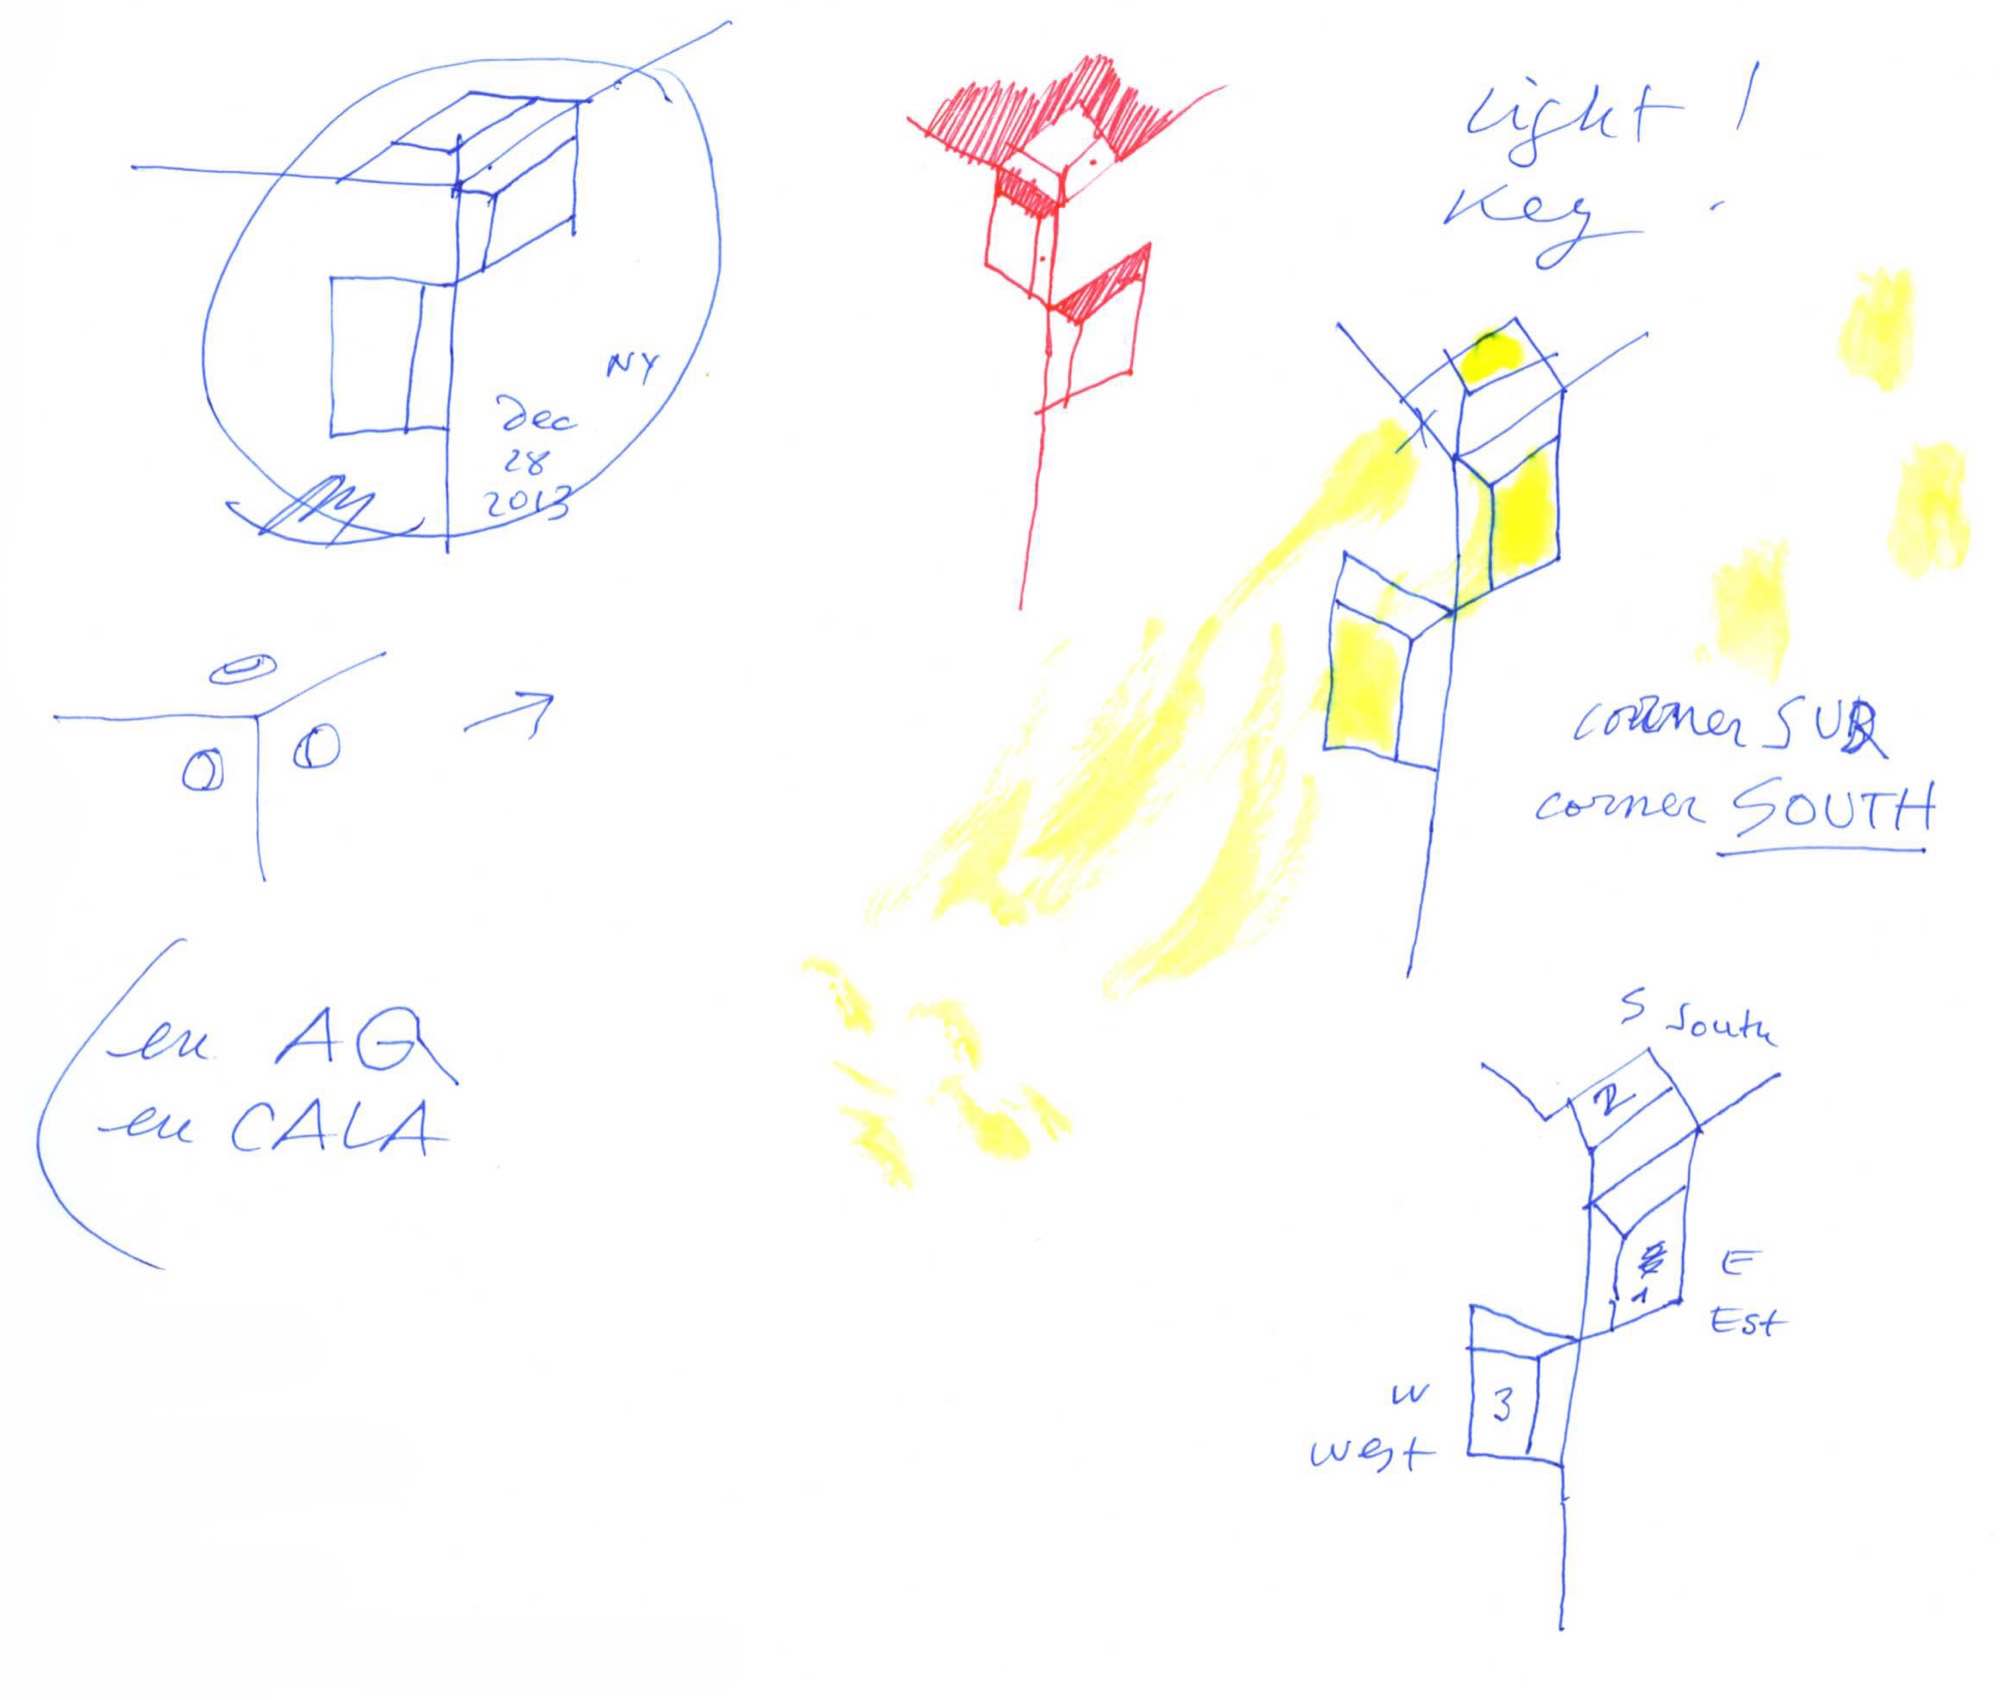 Light!
Key.
NY
Dec
28
2013
corner SUR
corner SOUTH
en AG
en CALA
S South
2
E
1
Est
W
3
West